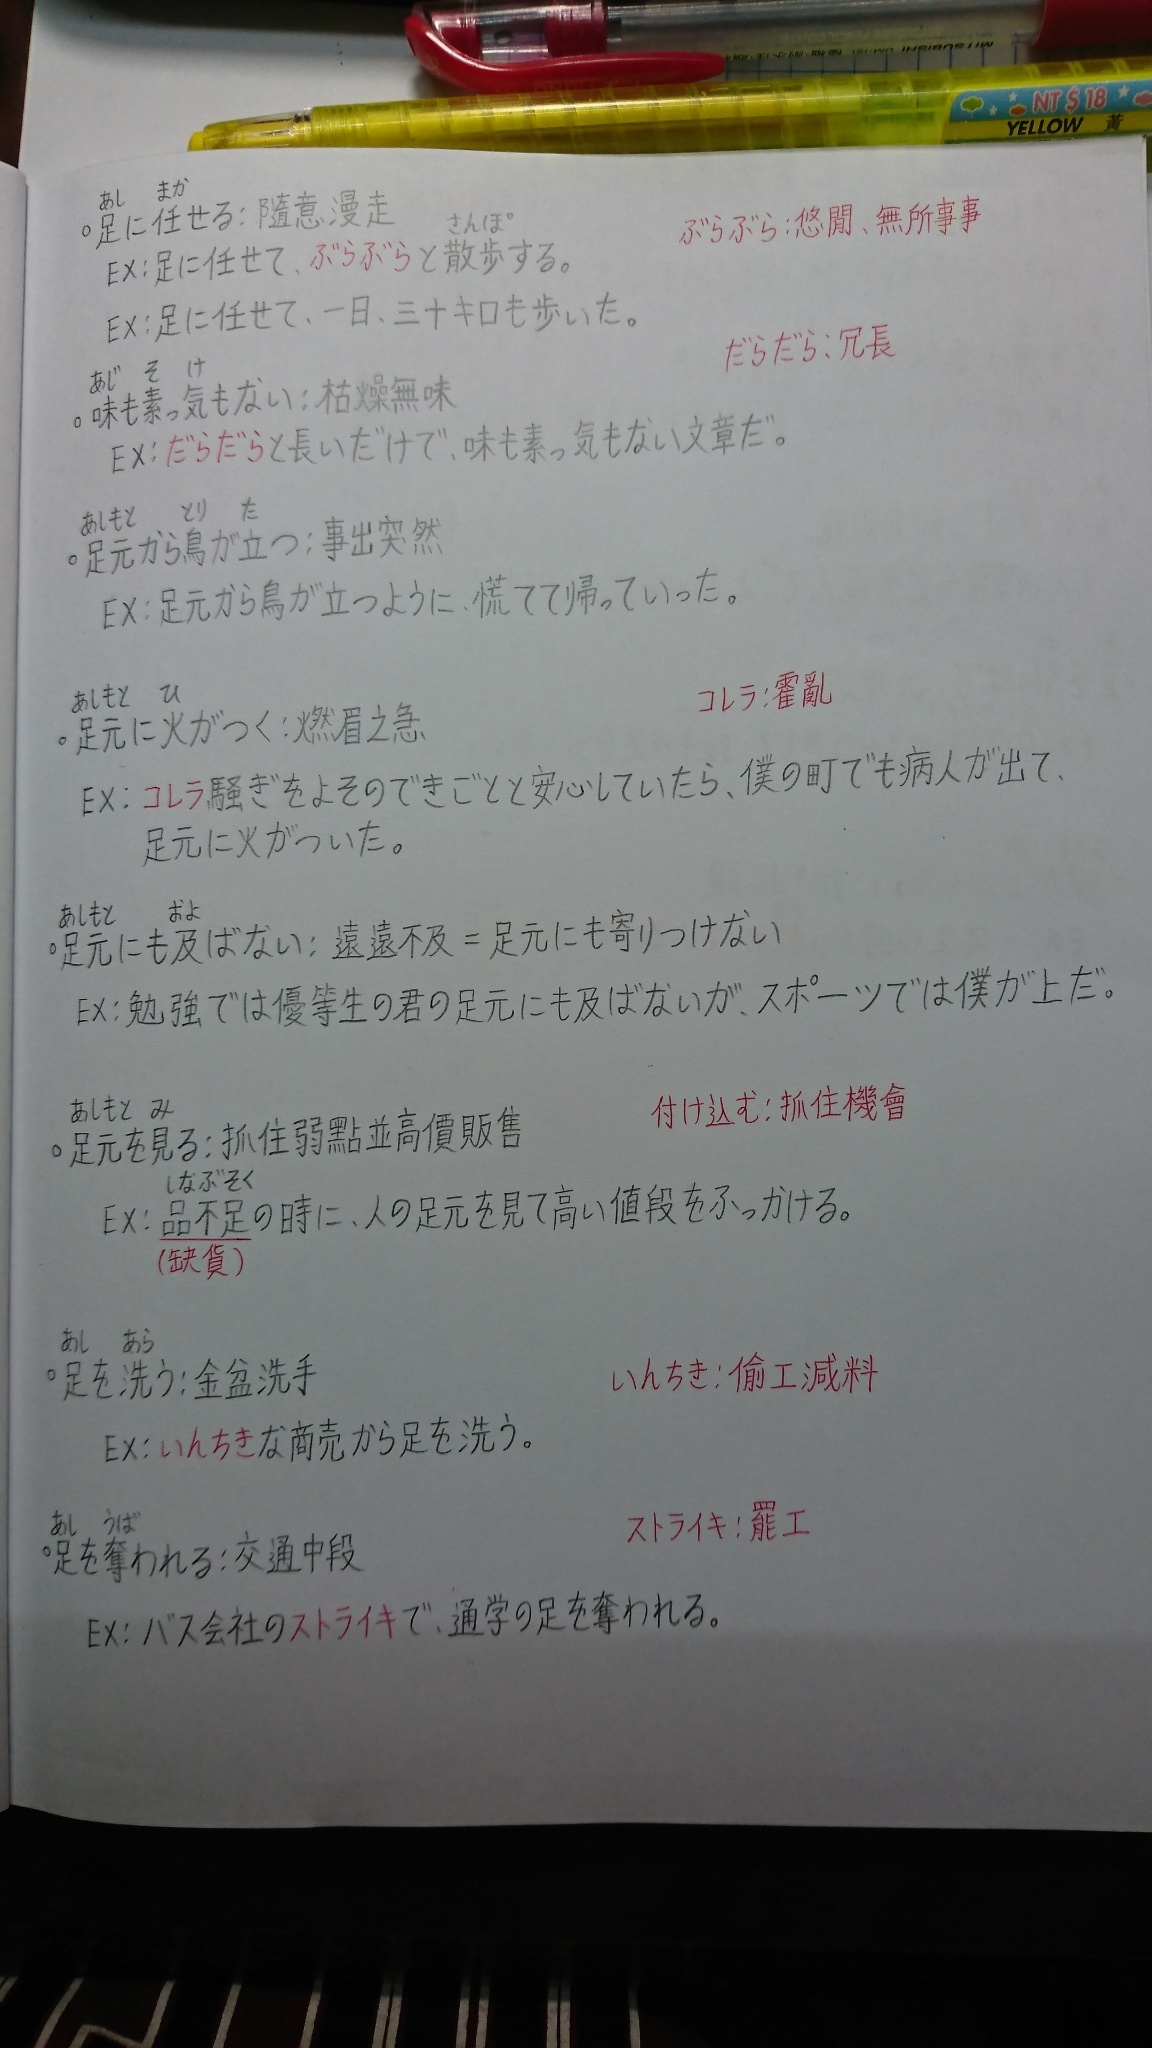 NT$18
YELLOW 黃
あし まか
足に任せる：隨意漫走
ぶらぶら：悠閒、無所事事
さんぽ
EX：足に任せて、ぶらぶらと散歩する。
EX：足に任せて、一日、三十キロも歩いた。
だらだら：冗長
あじ そ け
味も素っ気もない：枯燥無味
EX：だらだらと長いだけで、味も素っ気もない文章だ。
あしもと とり た
足元から鳥が立つ：事出突然
EX：足元から鳥が立つように、慌てて帰っていった。
コレラ：霍亂
あしもと ひ
足元に火がつく：燃眉之急
EX：コレラ騒ぎをよそのできごとと安心していたら、僕の町でも病人が出て、
足元に火がついた。
あしもと およ
足元にも及ばない：遠遠不及＝足元にも寄りつけない
EX：勉強では優等生の君の足元にも及ばないが、スポーツでは僕が上だ。
付け込む：抓住機會
あしもと み
足元を見る：抓住弱點並高價販售
しなぶそく
EX：品不足の時に、人の足元を見て高い値段をふっかける。
(缺貨)
あし あら
足を洗う：金盆洗手
いんちき：偷工減料
EX：いんちきな商売から足を洗う。
ストライキ：罷工
あし うば
足を奪われる：交通中段
EX：バス会社のストライキで、通学の足を奪われる。